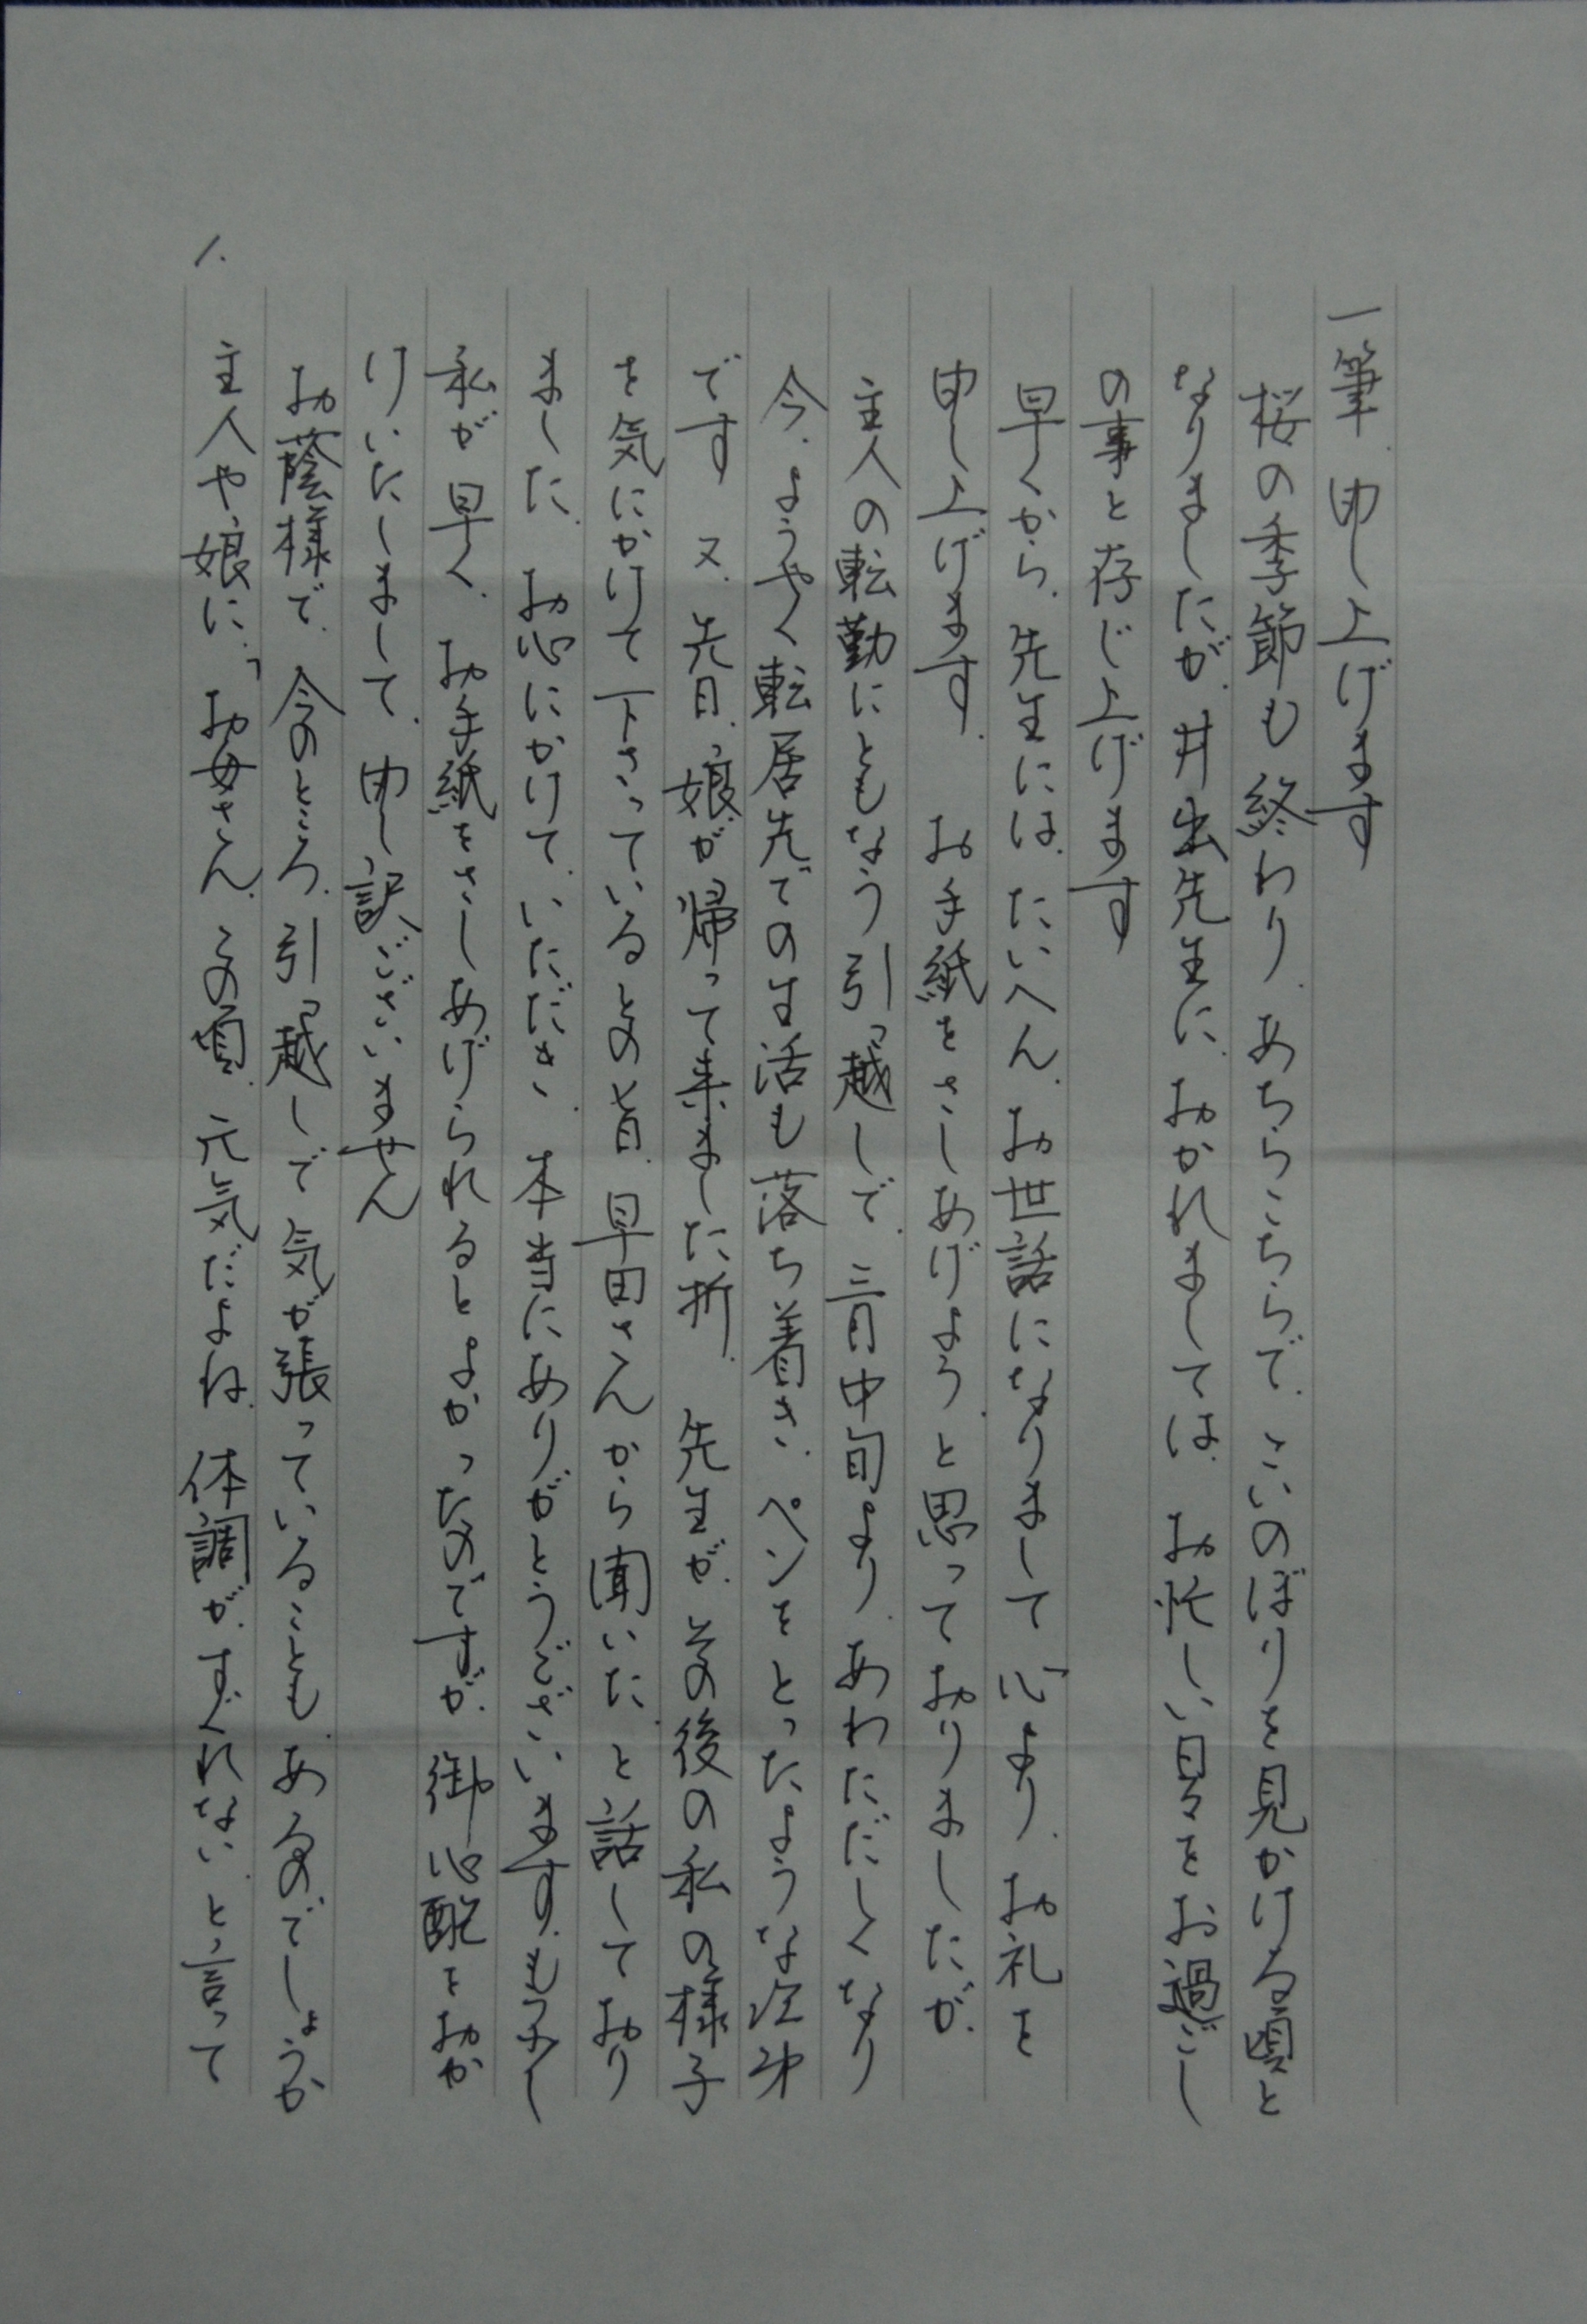 一筆 申し上げます
桜の季節も終わり、あちらこちらで、こいのぼりを見かける頃と
なりましたが、井出先生に、おかれましては、お忙しい日々をお過ごし
の事と存じ上げます
早くから、先生には、たいへん、お世話になりまして 心より、お礼を
申し上げます。 お手紙をさしあげよう、と思っておりましたが、
主人の転勤にともなう引っ越しで、三月中旬より、あわただしくなり
今、ようやく転居先での生活も落ち着き、ペンをとったような次第
です 又、先日、娘が帰って来ました折、 先生が、その後の私の様子
を気にかけて下さっているとの旨、早田さんから聞いた、と話しており
ました、お心にかけて、いただき、本当にありがとうございます、もう少し
私が早く、お手紙をさしあげられるとよかったのですが、御心配をおか
けいたしまして、申し訳ございません
お蔭様で、今のところ、引っ越しで気が張っていることも、あるのでしょうか
主人や娘に、「お母さん、この頃、元気だよね、体調が、すぐれない、と言って
1.